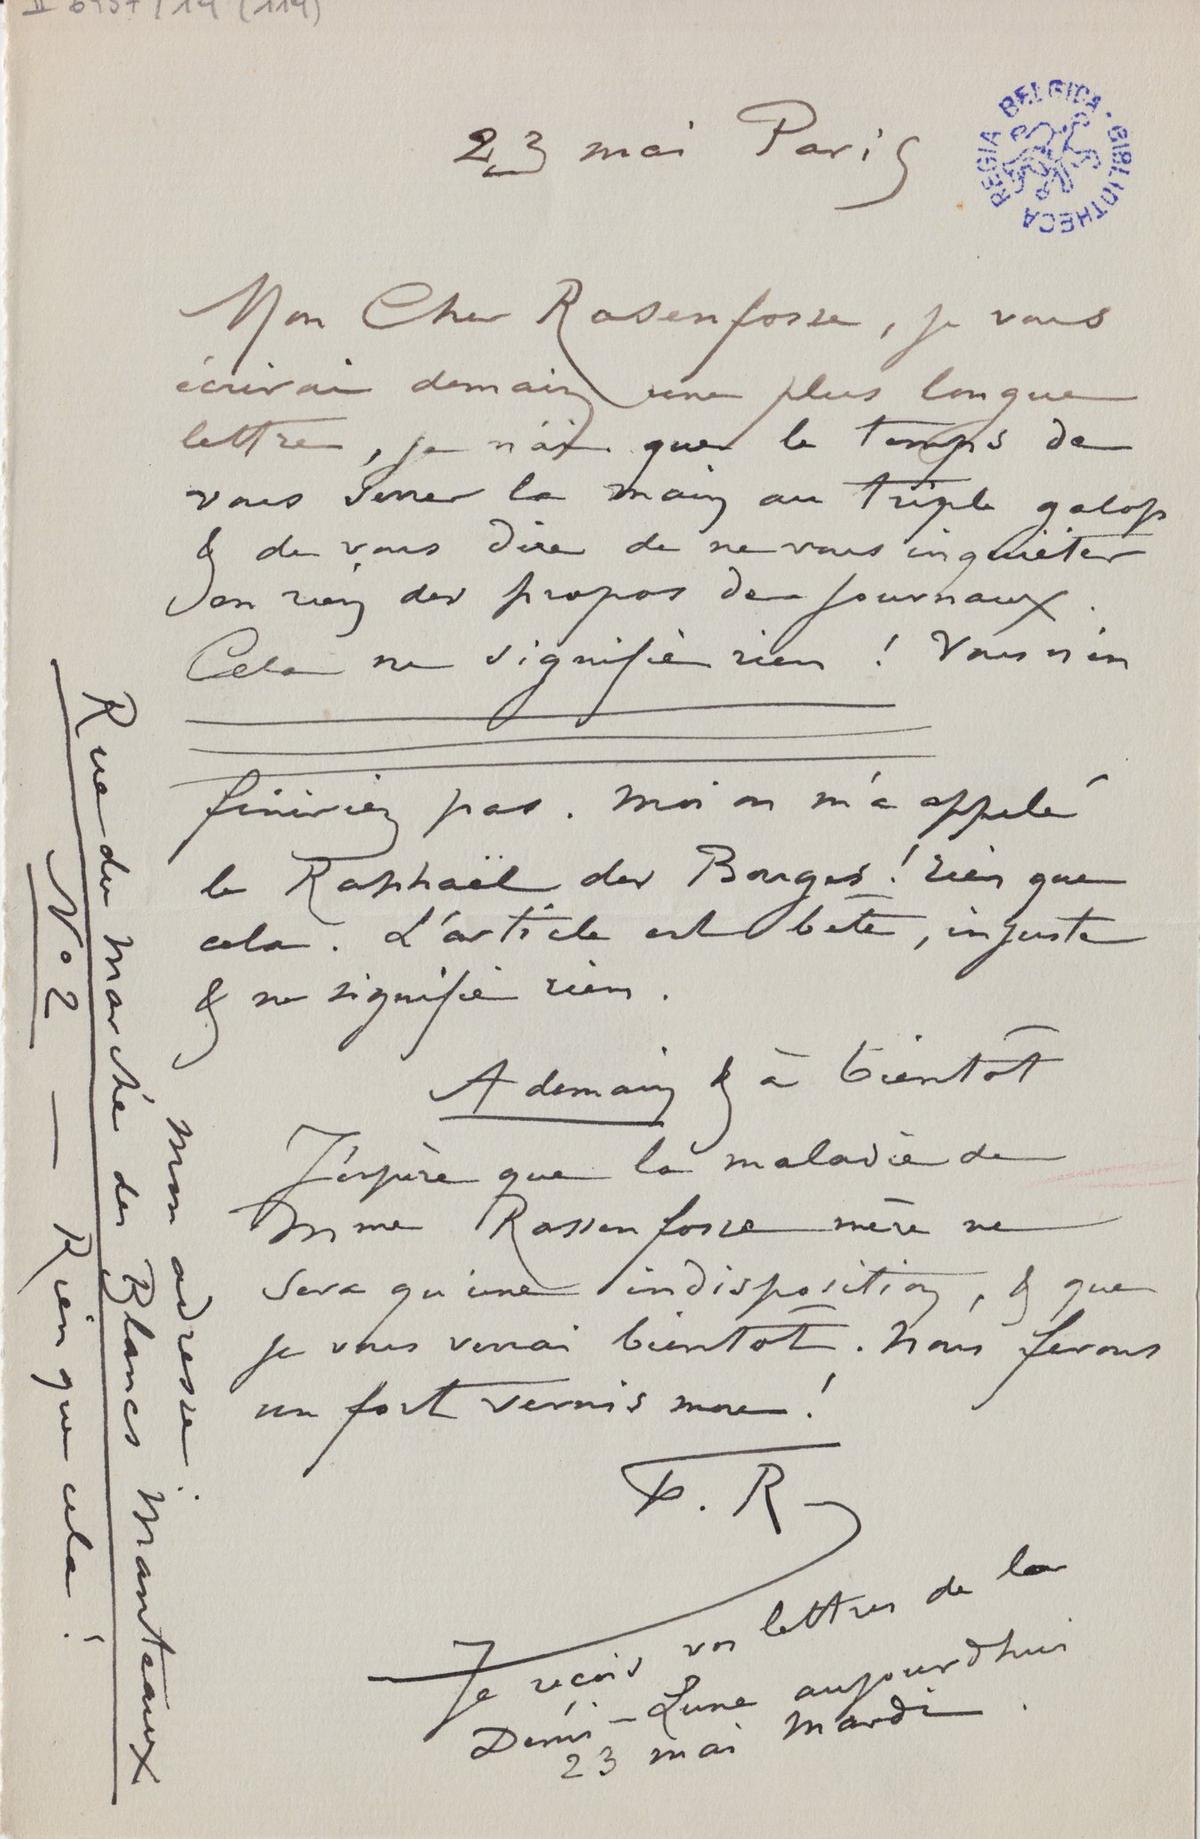 II 6957/19 (119)
23 mai Paris
BIBLIOTHECA REGIA BELGICA
Mon Cher Rasenfosse, je vous
écrirai demain une plus longue
lettre, je n'ai que le temps de
vous serrer la main au triple galop
& de vous dire de ne vous inquiéter
en rien des propos de journaux.
Cela ne signifie rien ! Vous n'en
finiriez pas. Moi on m'a appelé
le Raphaël des Bouges ! rien que
cela. L'article est bête, injuste
& ne signifie rien.
A demain & à bientôt
J'espère que la maladie de
Mme Rassenfosse mère ne
sera qu'une indisposition, & que
je vous verrai bientôt. Nous ferons
un fort vernis mou !
F. R
Je reçois vos lettres de la
Demi-Lune aujourdhui
23 mai Mardi.
Mon adresse :
Rue du Marché des Blancs Manteaux
No 2 — Rien que cela !